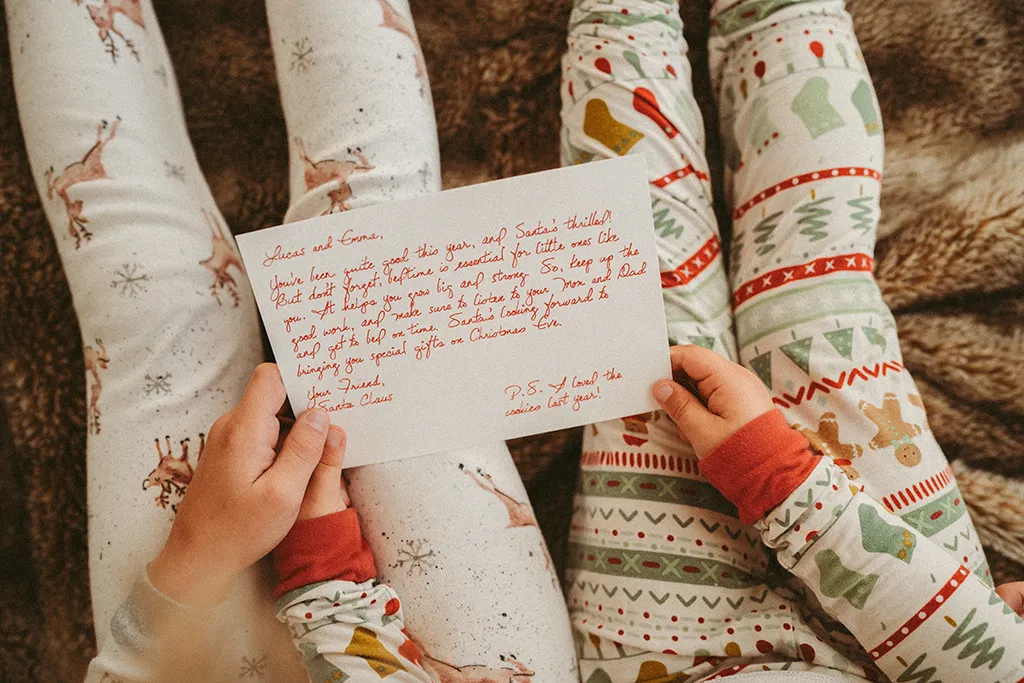 Lucas and Emma,
You've been quite good this year, and Santa's thrilled!
But don't forget, bedtime is essential for little ones like
you. It helps you grow big and strong. So, keep up the
good work, and make sure to listen to your Mom and Dad
and get to bed on time. Santa's looking forward to
bringing you special gifts on Christmas Eve.
Your Friend,
Santa Claus
P.S. I loved the
cookies last year!